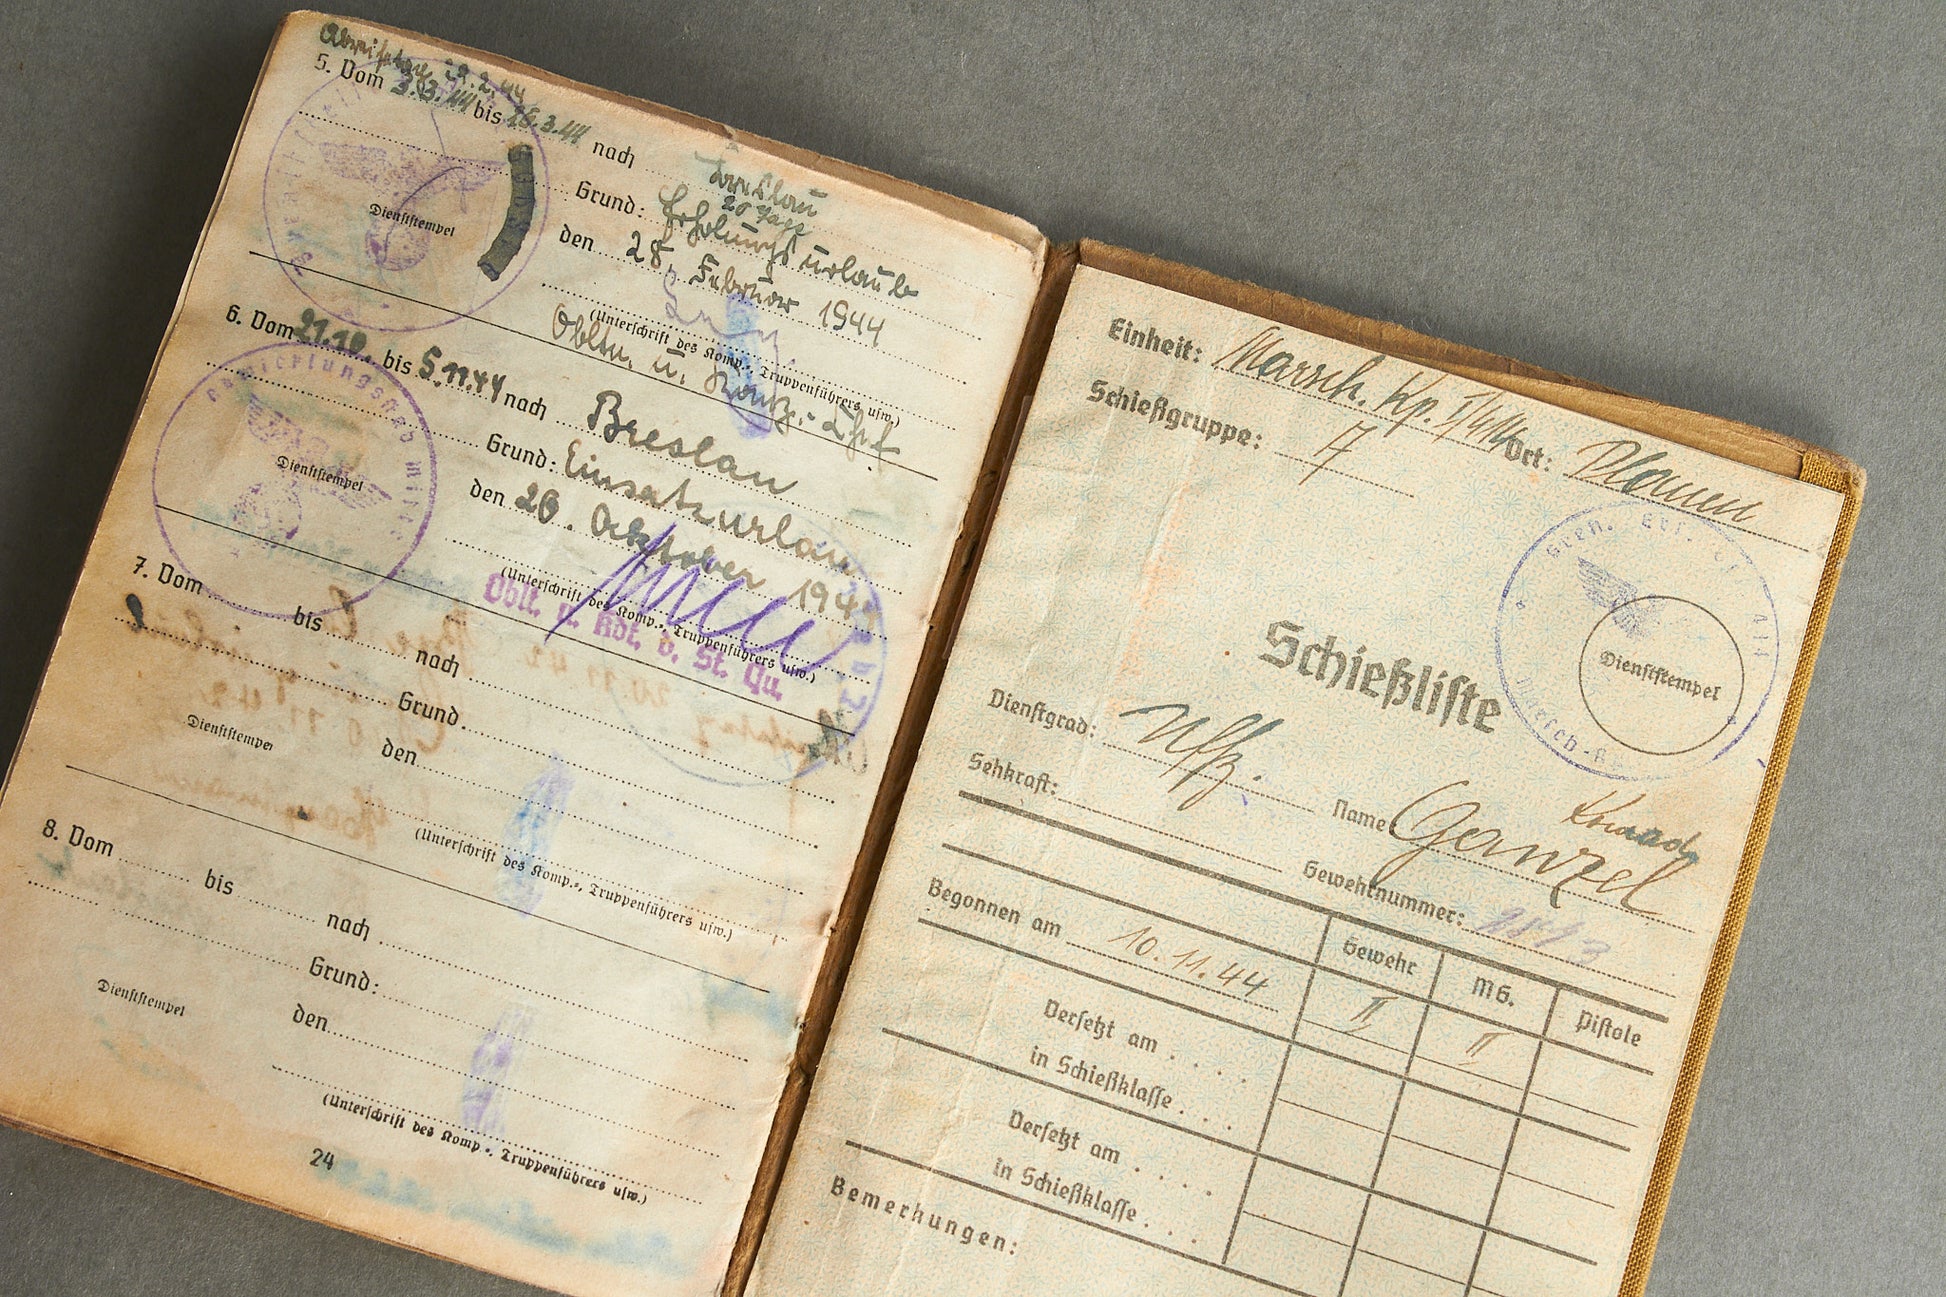 Abreisetag 29.2.44
5. Vom 3.3.44 bis 26.3.44 nach Breslau
20 Tage
Grund: Erholungsurlaub
den 28. Februar 1944
Dienststempel
(Unterschrift des Komp.-, Truppenführers usw.)
Obltn. u.
6. Vom 21.10. bis 5.11.44 nach Breslau
Grund: Einsatzurlaub
den 20. Oktober 1944
Abwicklungsstab
Dienststempel
(Unterschrift des Komp.-, Truppenführers usw.)
Oblt. u. Kdt. d. St. Qu.
7. Vom bis nach
Grund.
Dienststempel
den
(Unterschrift des Komp.-, Truppenführers usw.)
8. Vom bis nach
Grund:
Dienststempel
den
(Unterschrift des Komp.-, Truppenführers usw.)
24
Einheit: Marsch. Kp. Ort: Plauen
Schießgruppe: 7
Marsch-K
Dienststempel
Schießliste
Dienstgrad: Uffz. Name: Ganzel
Sehkraft: Gewehrnummer:
Gewehr MG. Pistole
Begonnen am 10.11.44 II II
Versetzt am
in Schießklasse
Versetzt am
in Schießklasse
Bemerkungen: